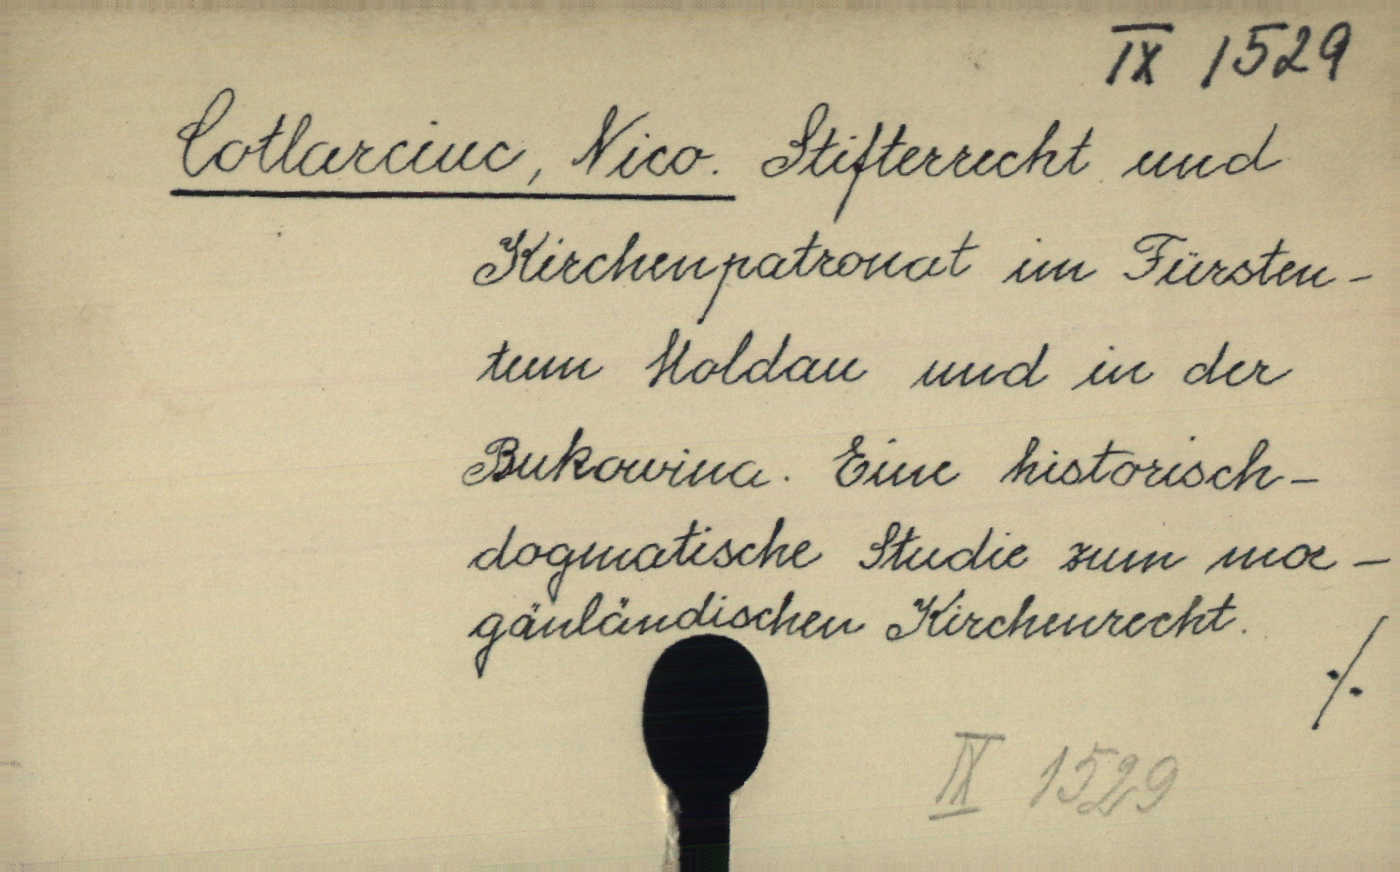 IX 1529
Cotlarciuc, Nico. Stifterrecht und
Kirchenpatronat im Fürsten-
tum Moldau und in der
Bukowina. Eine historisch-
dogmatische Studie zum mor-
gänländischen Kirchenrecht.
./.
IX 1529